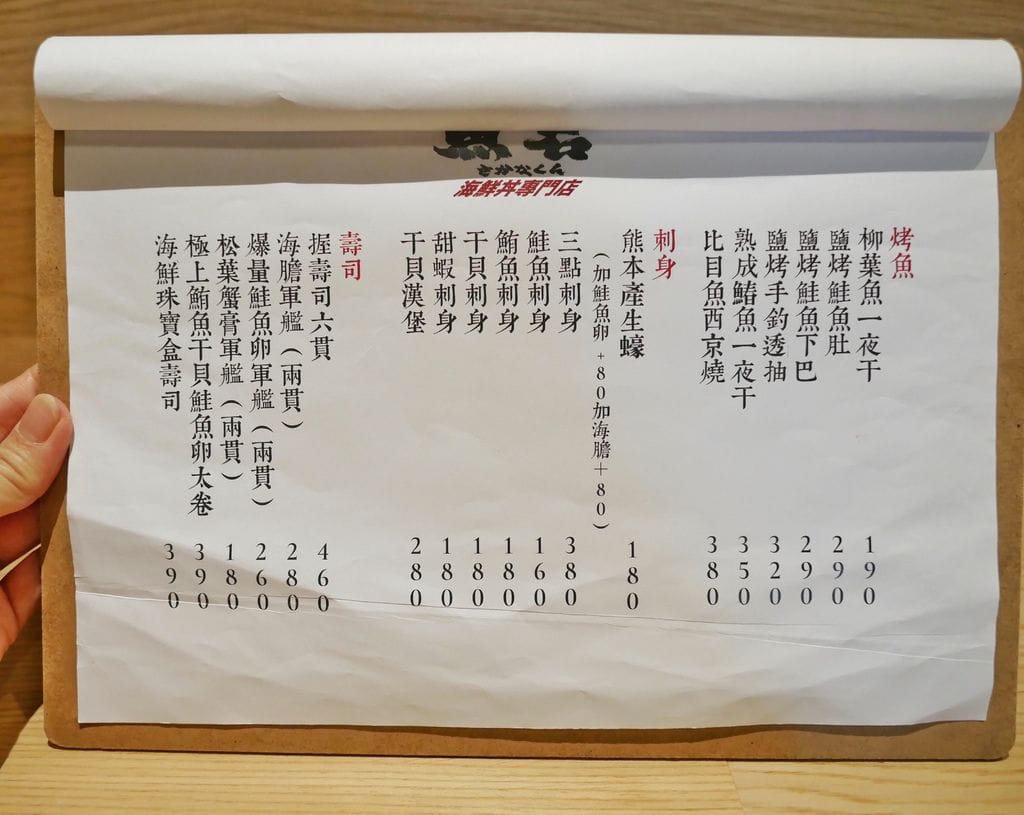 さかなくん
海鮮丼專門店
烤魚
柳葉魚一夜干 190
鹽烤鮭魚肚 290
鹽烤鮭魚下巴 290
鹽烤手釣透抽 320
熟成鰆魚一夜干 350
比目魚西京燒 380
刺身
熊本產生蠔 180
(加鮭魚卵+80加海膽+80)
三點刺身 380
鮭魚刺身 160
鮪魚刺身 180
干貝刺身 180
甜蝦刺身 180
干貝漢堡 280
壽司
握壽司六貫 460
海膽軍艦(兩貫) 280
爆量鮭魚卵軍艦(兩貫) 260
松葉蟹膏軍艦(兩貫) 180
極上鮪魚干貝鮭魚卵太卷 390
海鮮珠寶盒壽司 390